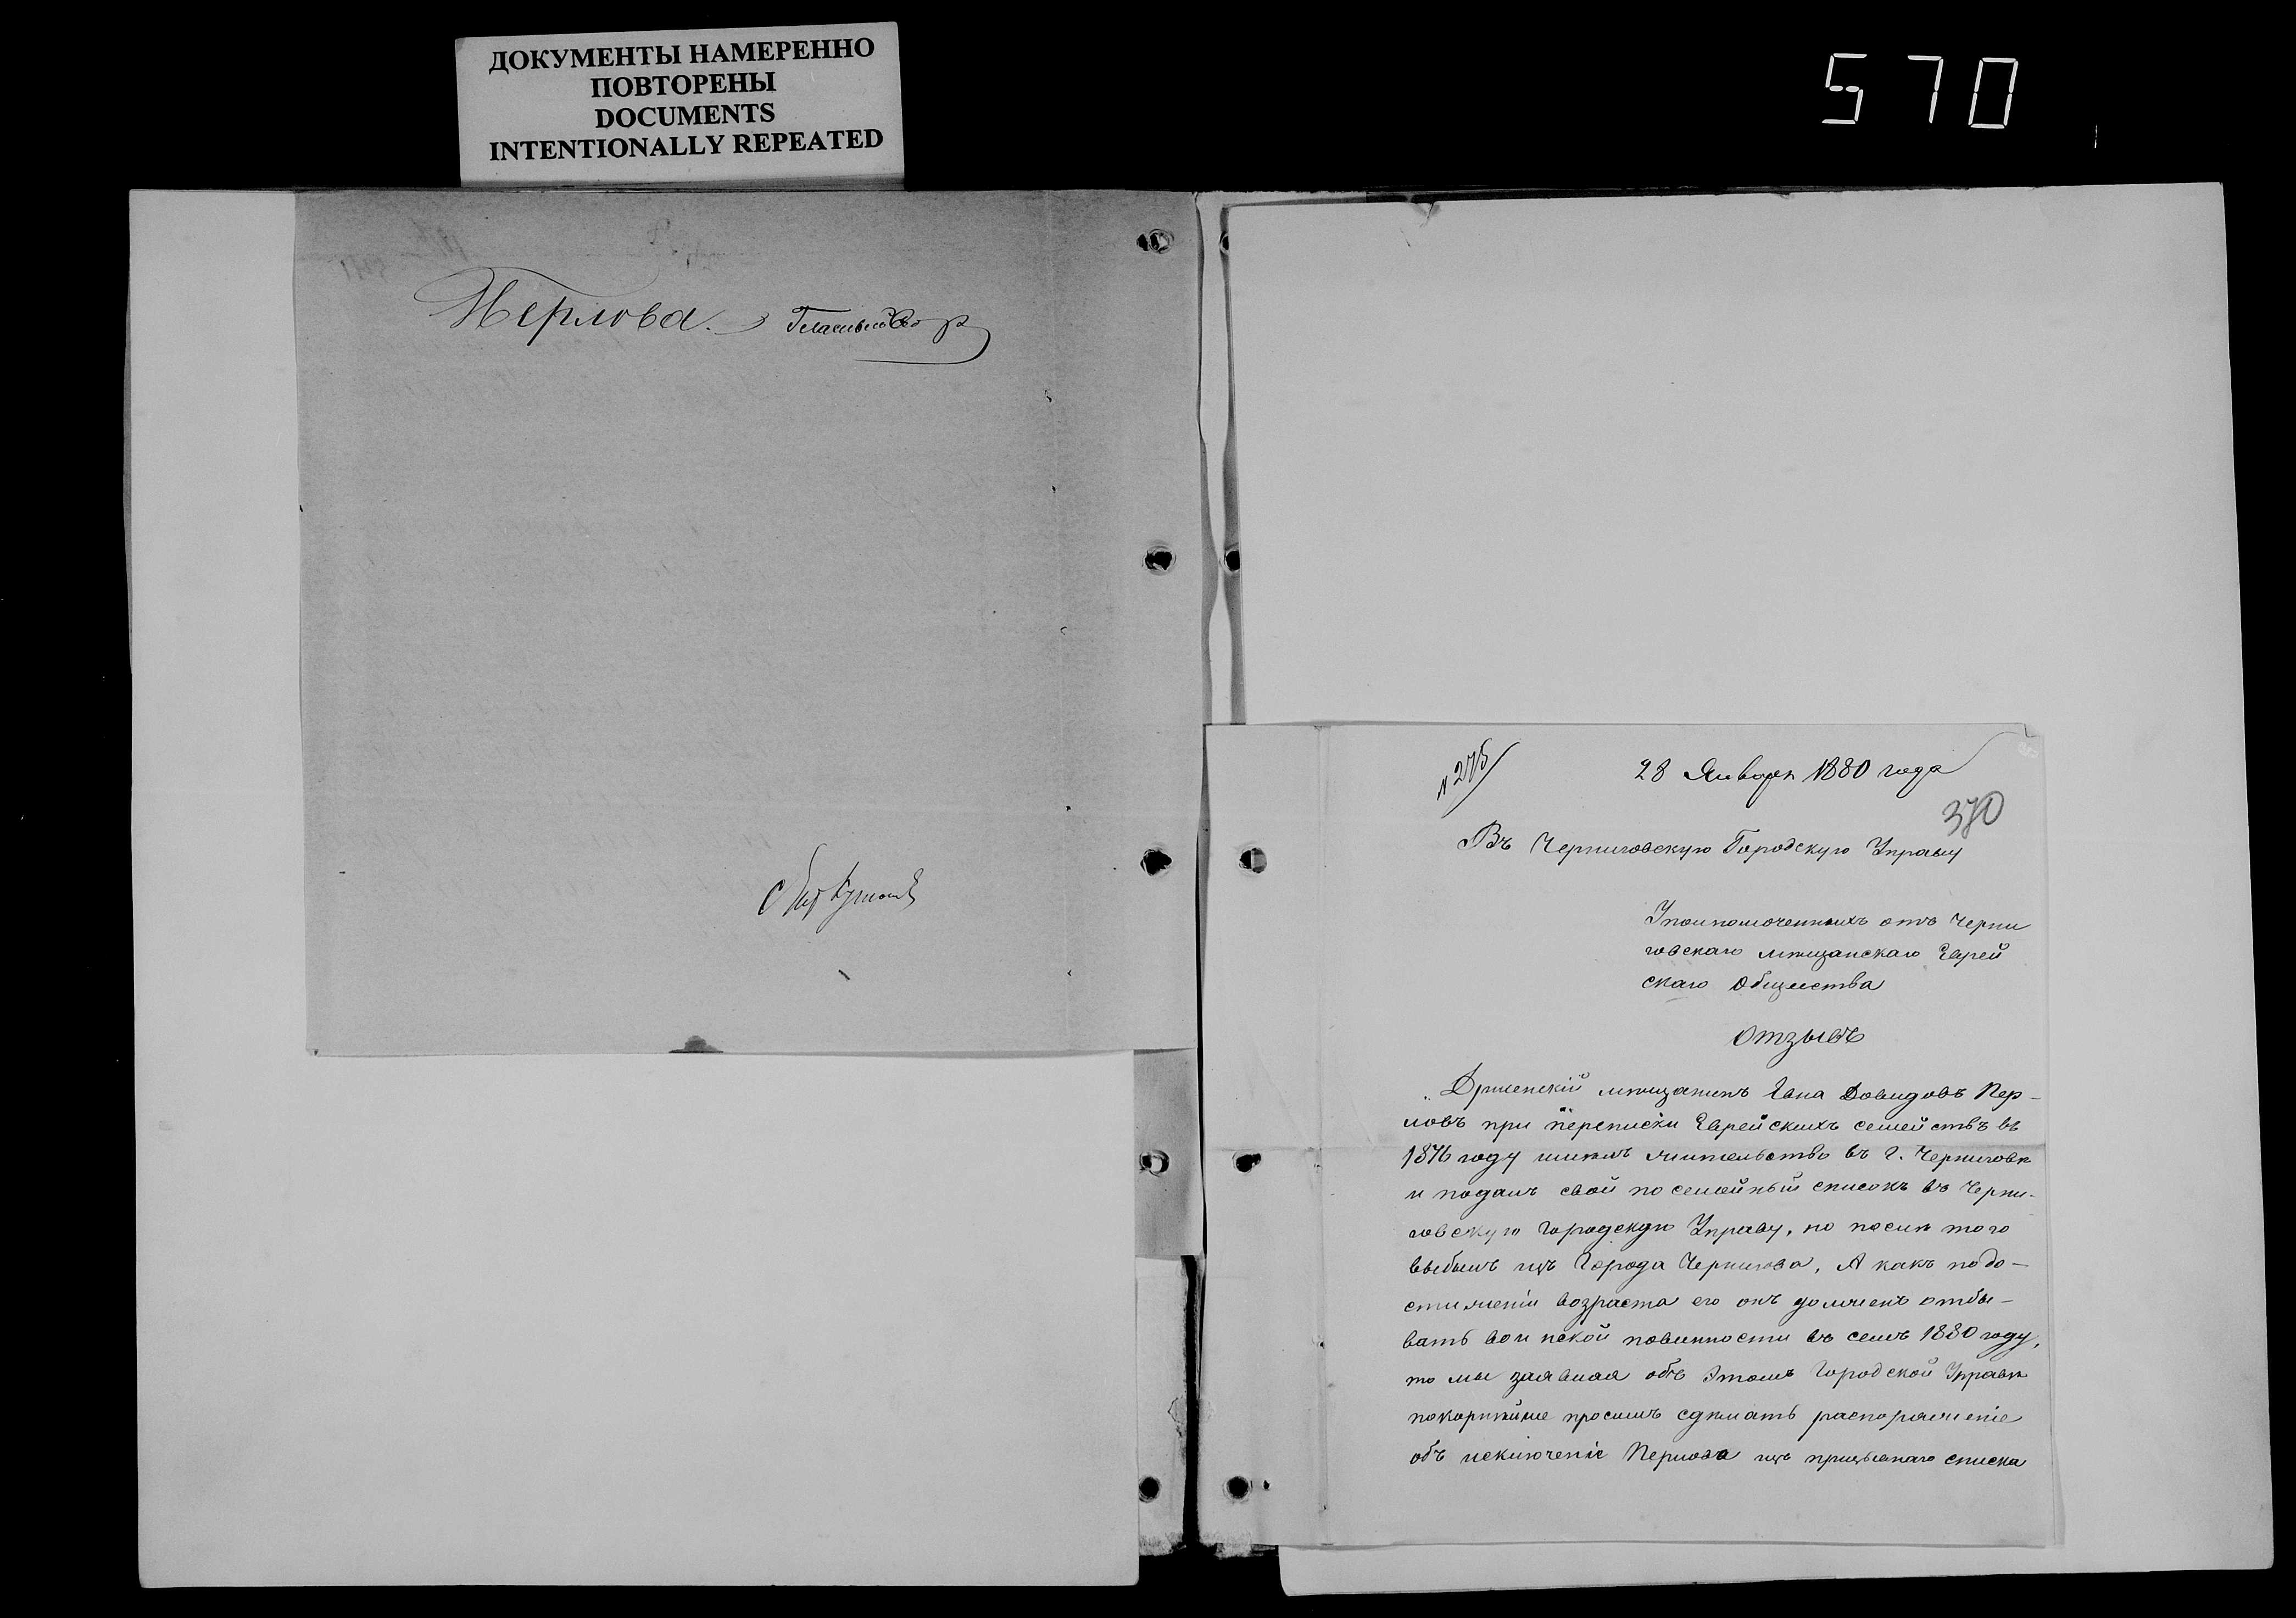 ДОКУМЕНТЫ НАМЕРЕННО
ПОВТОРЕНЫ
DOCUMENTS
INTENTIONALLY REPEATED
570
Перлова. Гласный
№ 275
28 Января 1880 года
370
Въ Черниговскую Городскую Управу
Уполномоченныхъ отъ Черни
говскаго мѣщанскаго Еврей
скаго Общества
Отзывъ
мѣщанинъ Довидовъ Пер-
ловъ при переписки Еврейскихъ семействъ въ
1876 году имѣлъ жительство въ г. Черниговѣ
и подалъ свой посемейный списокъ въ Черни-
говскую Городскую Управу, но послѣ того
выбылъ изъ Города Чернигова, А какъ по до-
стиженіи возраста его онъ долженъ отбы-
вать воинской повинности въ семъ 1880 году,
то мы заявляя объ этомъ Городской Управѣ
покорнѣйше просимъ сдѣлать распоряженіе
объ исключеніе Перлова изъ призывнаго списка